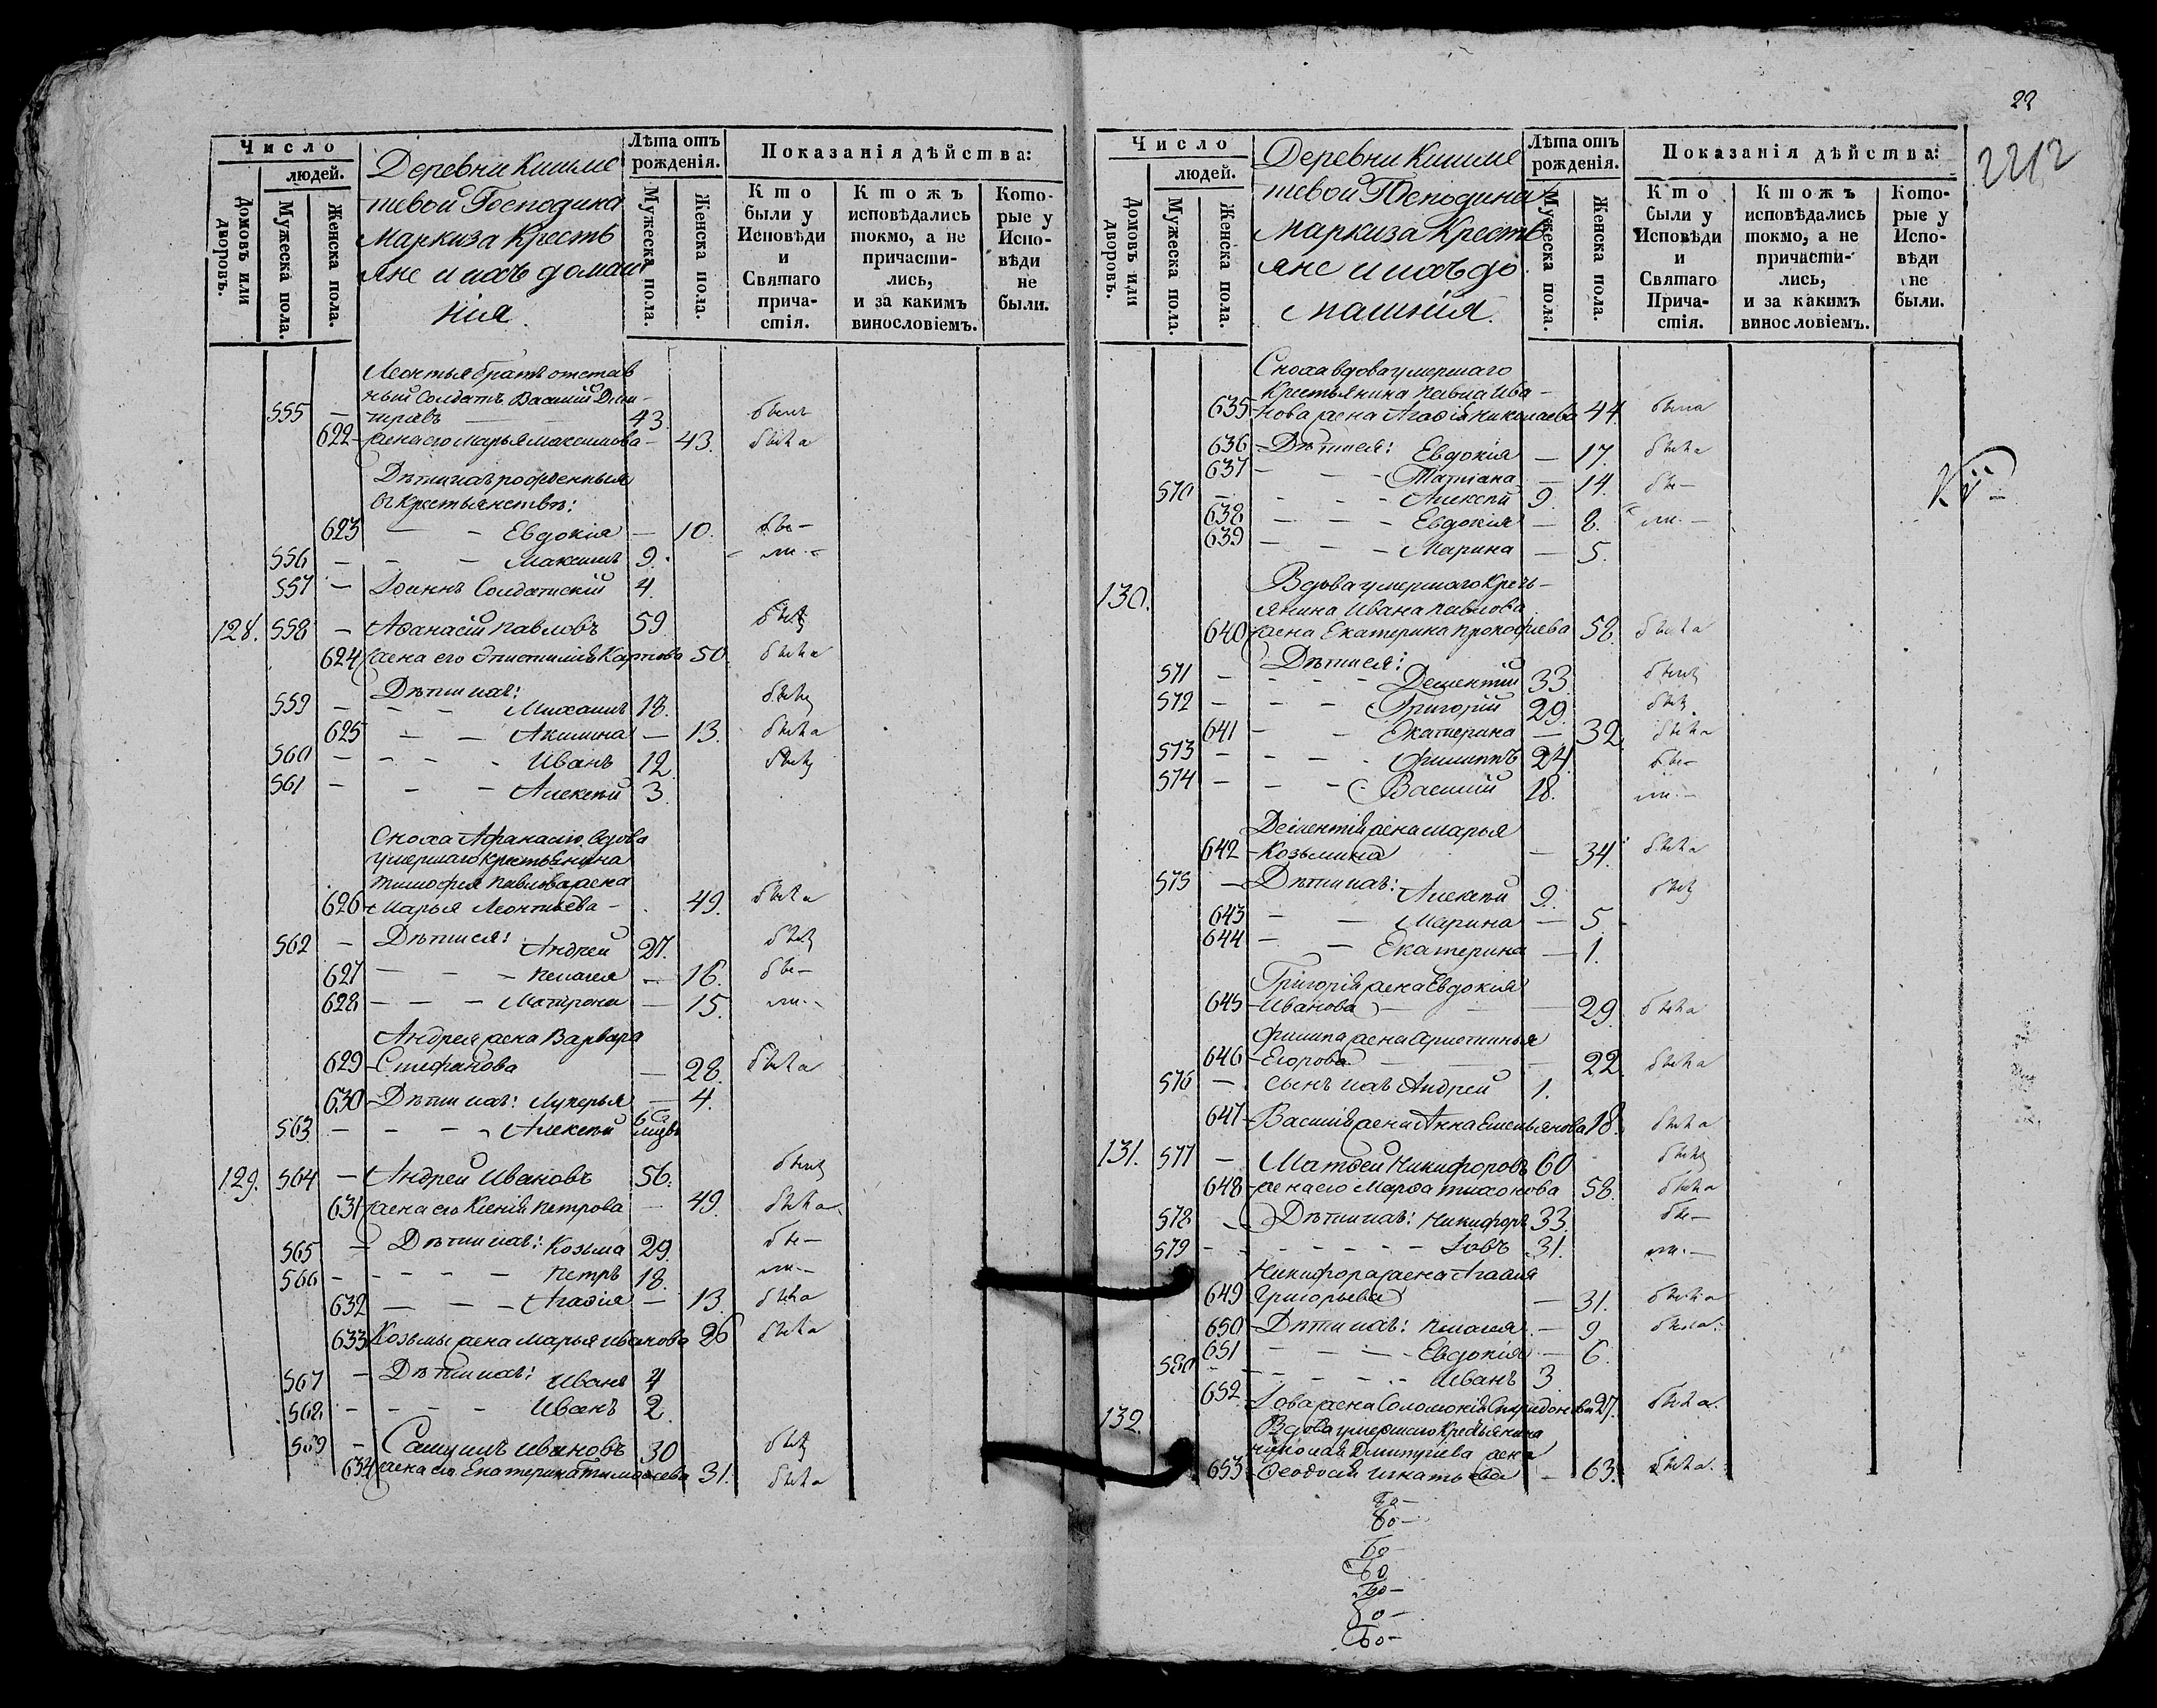 Число
людей.
Домовъ или дворовъ.
Мужеска пола.
Женска пола.
Деревни Кишме
тевой Господина
Маркиза Кресть
яне и ихъ домаш
нія.
Лѣта отъ рожденія.
Мужеска пола.
Женска пола.
Показанія дѣйства:
Кто были у Исповѣди и Святаго причастія.
Ктожъ исповѣдались токмо, а не причастились, и за какимъ винословіемъ.
Которые у Исповѣди не были.
Леонтья братъ отстав
ный Солдатъ Василій Дми-
555 — тріевъ — 43. былъ
622 — жена его Марья Максимова — 43. была
Дѣти ихъ рожденныя
въ крестьянствѣ:
623 — — Евдокія — 10. бы—
556 — — — Максимъ 9. — ли. —
557 — Іоаннъ Солдатскій 4.
128. 558 — Аѳанасій Павловъ 59. былъ
624 жена его Епистимія Карпова 50. была
Дѣти ихъ:
559 — — — Михаилъ 18. былъ
625 — — Акилина — 13. была
560 — — — Иванъ 12. былъ
561 — — — Алексѣй 3.
Сноха Афанасію вдова
умершаго крестьянина
Тимофея Павлова жена
626 Марья Леонтьева — 49. была
562 — Дѣти ея: Андрей 27. былъ
627 — — — Пелагея — 16. бы—
628 — — — Матрона — 15. ли. —
Андрея жена Варвара
629 Стефанова — 28. была
630 Дѣти ихъ: Лукерья — 4.
563 — — — Алексѣй 6
129. 564 — Андрей Ивановъ 56. былъ
631 жена его Ксенія Петрова — 49. была
565 — Дѣти ихъ: Козьма 29. бы—
566 — — — — Петръ 18. ли. —
632 — — — Агаѳія — 13. была
633 Козьмы жена Марья Иванова 26 была
567 — Дѣти ихъ: Иванъ 4
568 — — — — Иванъ 2.
569 — Самуилъ Ивановъ 30 былъ
634 жена его Екатерина Тимоѳеева 31. была
22
2212
Число
людей.
Домовъ или дворовъ.
Мужеска пола.
Женска пола.
Деревни Кишме
тевой Господина
Маркиза Кресть
яне и ихъ до
машнія.
Лѣта отъ рожденія.
Мужеска пола.
Женска пола.
Показанія дѣйства:
Кто были у Исповѣди и Святаго Причастія.
Ктожъ исповѣдались токмо, а не причастились, и за какимъ винословіемъ.
Которые у Исповѣди не были.
Сноха вдова умершаго
Крестьянина Павла Ива—
635 нова жена Агаѳія Николаева 44. была
636 Дѣти ея: Евдокія — 17. была
637 — — — Татіана — 14. бы—
570 — — — Алексѣй 9.
638 — — — Евдокія — 8. ли. —
639 — — — Марина — 5.
130. Вдова умершаго Кресть—
янина Ивана Павлова
640 жена Екатерина Прокофьева 58. была
Дѣти ея:
571 — — — Дементій 33. былъ
572 — — — Григорій 29. былъ
641 — — Екатерина — 32. была
573 — — — Филиппъ 24. бы—
574 — — — Василій 18. ли. —
Дементія жена Марья
642 Козьмина — 34. была
575 — Дѣти ихъ: Алексѣй 9. былъ
643 — — Марина — 5.
644 — — Екатерина — 1.
Григорія жена Евдокія
645 Иванова — — 29. была
Филипа жена Христинья
646 Егорова — — 22. была
576 — сынъ ихъ Андрей 1.
647 Василія жена Анна Емельянова 18. была
131. 577 — Матѳей Никифоровъ 60 былъ
648 жена его Марѳа Тихонова 58. была
578 — Дѣти ихъ: Никифоръ 33. бы—
579 — — — — Іовъ 31. ли. —
Никифора жена Агаѳія
649 Григорьева — 31. была
650 Дѣти ихъ: Пелагея — 9 была.
651 — — — Евдокія — 6.
580 — — — — Иванъ 3.
652 Іова жена Соломонія Спиридонова 27. была.
132. Вдова умершаго Крестьянина
Николая Дмитріева жена
653 Ѳеодосія Игнатьева — 63. была.